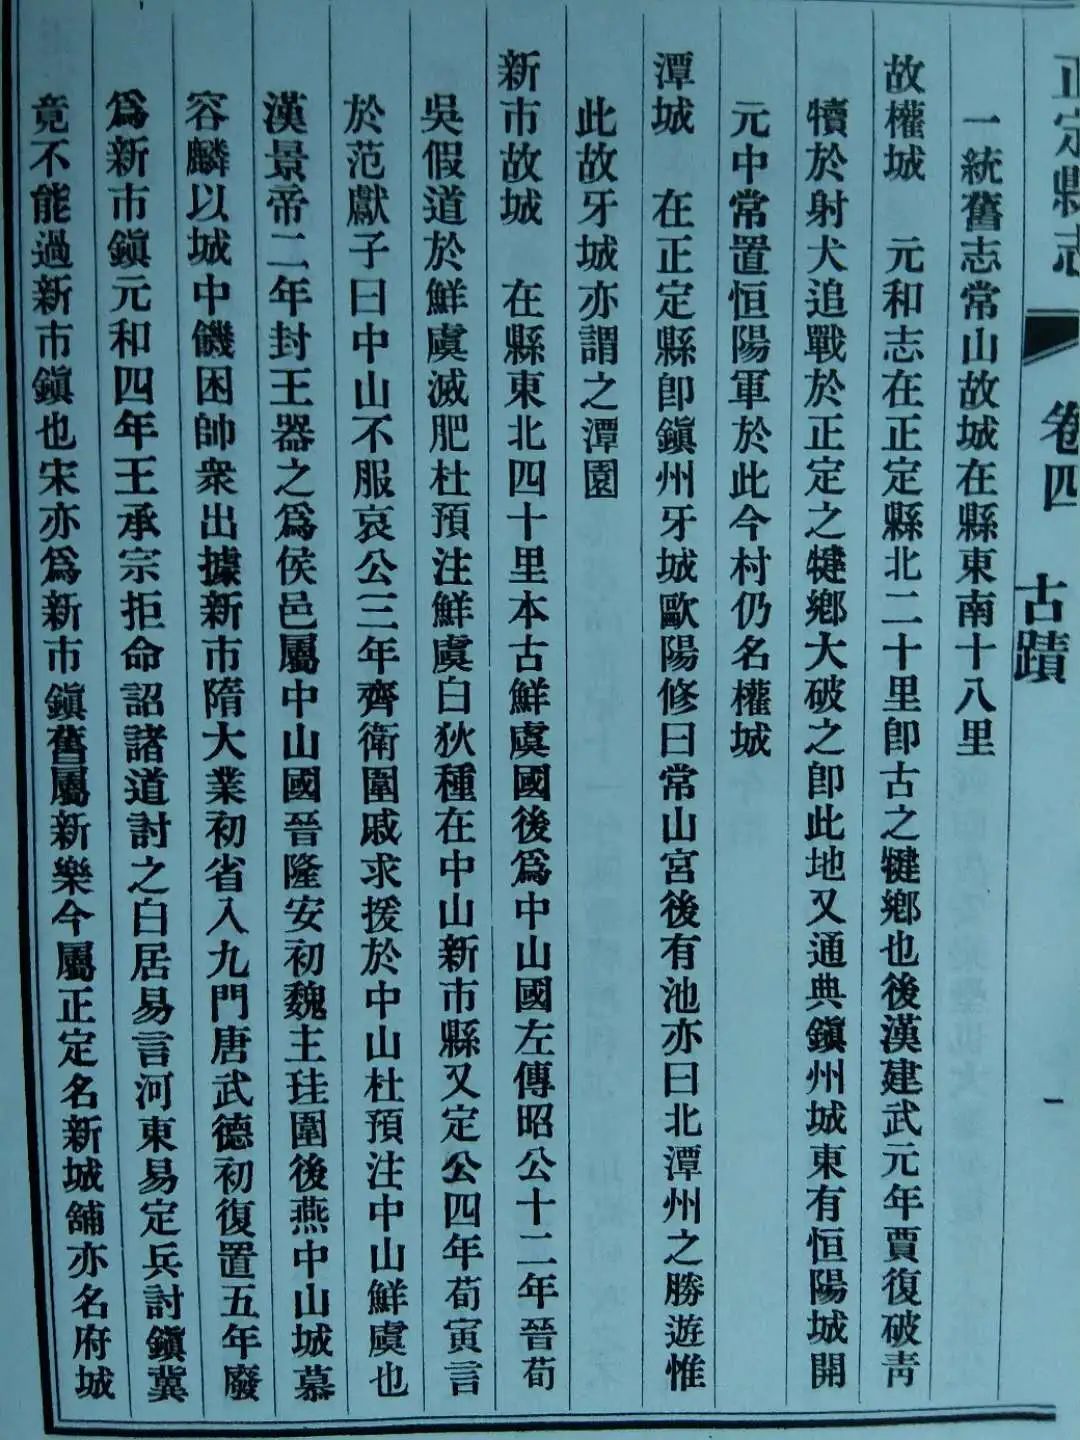 正定縣志
卷四
古蹟
一
一統舊志常山故城在縣東南十八里
故權城　元和志在正定縣北二十里卽古之犍鄉也後漢建武元年賈復破靑
犢於射犬追戰於正定之犍鄉大破之卽此地又通典鎭州城東有恒陽城開
元中常置恒陽軍於此今村仍名權城
潭城　在正定縣卽鎭州牙城歐陽修曰常山宮後有池亦曰北潭州之勝遊惟
此故牙城亦謂之潭園
新市故城　在縣東北四十里本古鮮虞國後爲中山國左傳昭公十二年晉荀
吳假道於鮮虞滅肥杜預注鮮虞白狄種在中山新市縣又定公四年荀寅言
於范獻子曰中山不服哀公三年齊衛圍戚求援於中山杜預注中山鮮虞也
漢景帝二年封王器之爲侯邑屬中山國晉隆安初魏主珪圍後燕中山城慕
容麟以城中饑困帥衆出據新市隋大業初省入九門唐武德初復置五年廢
爲新市鎭元和四年王承宗拒命詔諸道討之白居易言河東易定兵討鎭冀
竟不能過新市鎭也宋亦爲新市鎭舊屬新樂今屬正定名新城舖亦名府城